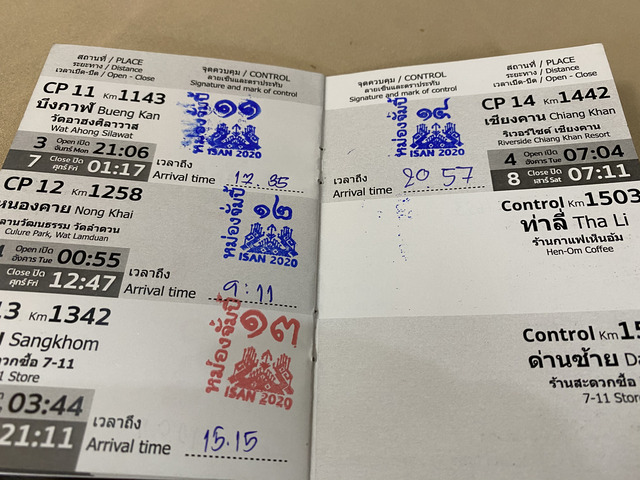 สถานที่ / PLACE
ระยะทาง / Distance
เวลาเปิด-ปิด / Open - Close
จุดควบคุม / CONTROL
ลายเซ็นและตราประทับ
Signature and mark of control
CP 11 Km 1143
บึงกาฬ Bueng Kan
วัดอาฮงศิลาวาส
Wat Ahong Silawat
3 Open เปิด จันทร์ Mon 21:06
7 Close ปิด ศุกร์ Fri 01:17
เวลาถึง
Arrival time 12.35
๑๑
ISAN 2020
CP 12 Km 1258
หนองคาย Nong Khai
ลานวัฒนธรรม วัดลำดวน
Culure Park, Wat Lamduan
Open เปิด อังคาร Tue 00:55
Close ปิด ศุกร์ Fri 12:47
เวลาถึง
Arrival time 9:11
หม่องจั้มปี้ ๑๒
ISAN 2020
13 Km 1342
Sangkhom
สะดวกซื้อ 7-11
Store
03:44
21:11
เวลาถึง
Arrival time 15.15
หม่องจั้มปี้ ๑๓
ISAN 2020
จุดควบคุม / CONTROL
ลายเซ็นและตราประทับ
Signature and mark of control
สถานที่ / PLACE
ระยะทาง / Distance
เวลาเปิด-ปิด / Open - Close
หม่องจั้มปี้ ๑๔
ISAN 2020
CP 14 Km 1442
เชียงคาน Chiang Khan
ริเวอร์ไซด์ เชียงคาน
Riverside Chiang Khan Resort
4 Open เปิด อังคาร Tue 07:04
8 Close ปิด เสาร์ Sat 07:11
เวลาถึง
Arrival time 20 57
Control Km 1503
ท่าลี่ Tha Li
ร้านกาแฟเห็นอ้ม
Hen-Om Coffee
Control Km
ด่านซ้าย
ร้านสะดวกซื้อ
7-11 Store